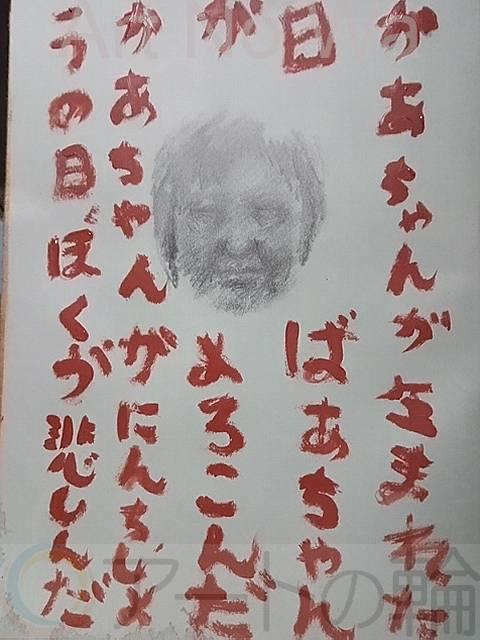 かあちゃんが生まれた
日 ばあちゃん
が よろこんだ
かあちゃんがにんちしょ
うの日、ぼくが悲しんだ
Art No Wa
アートの輪